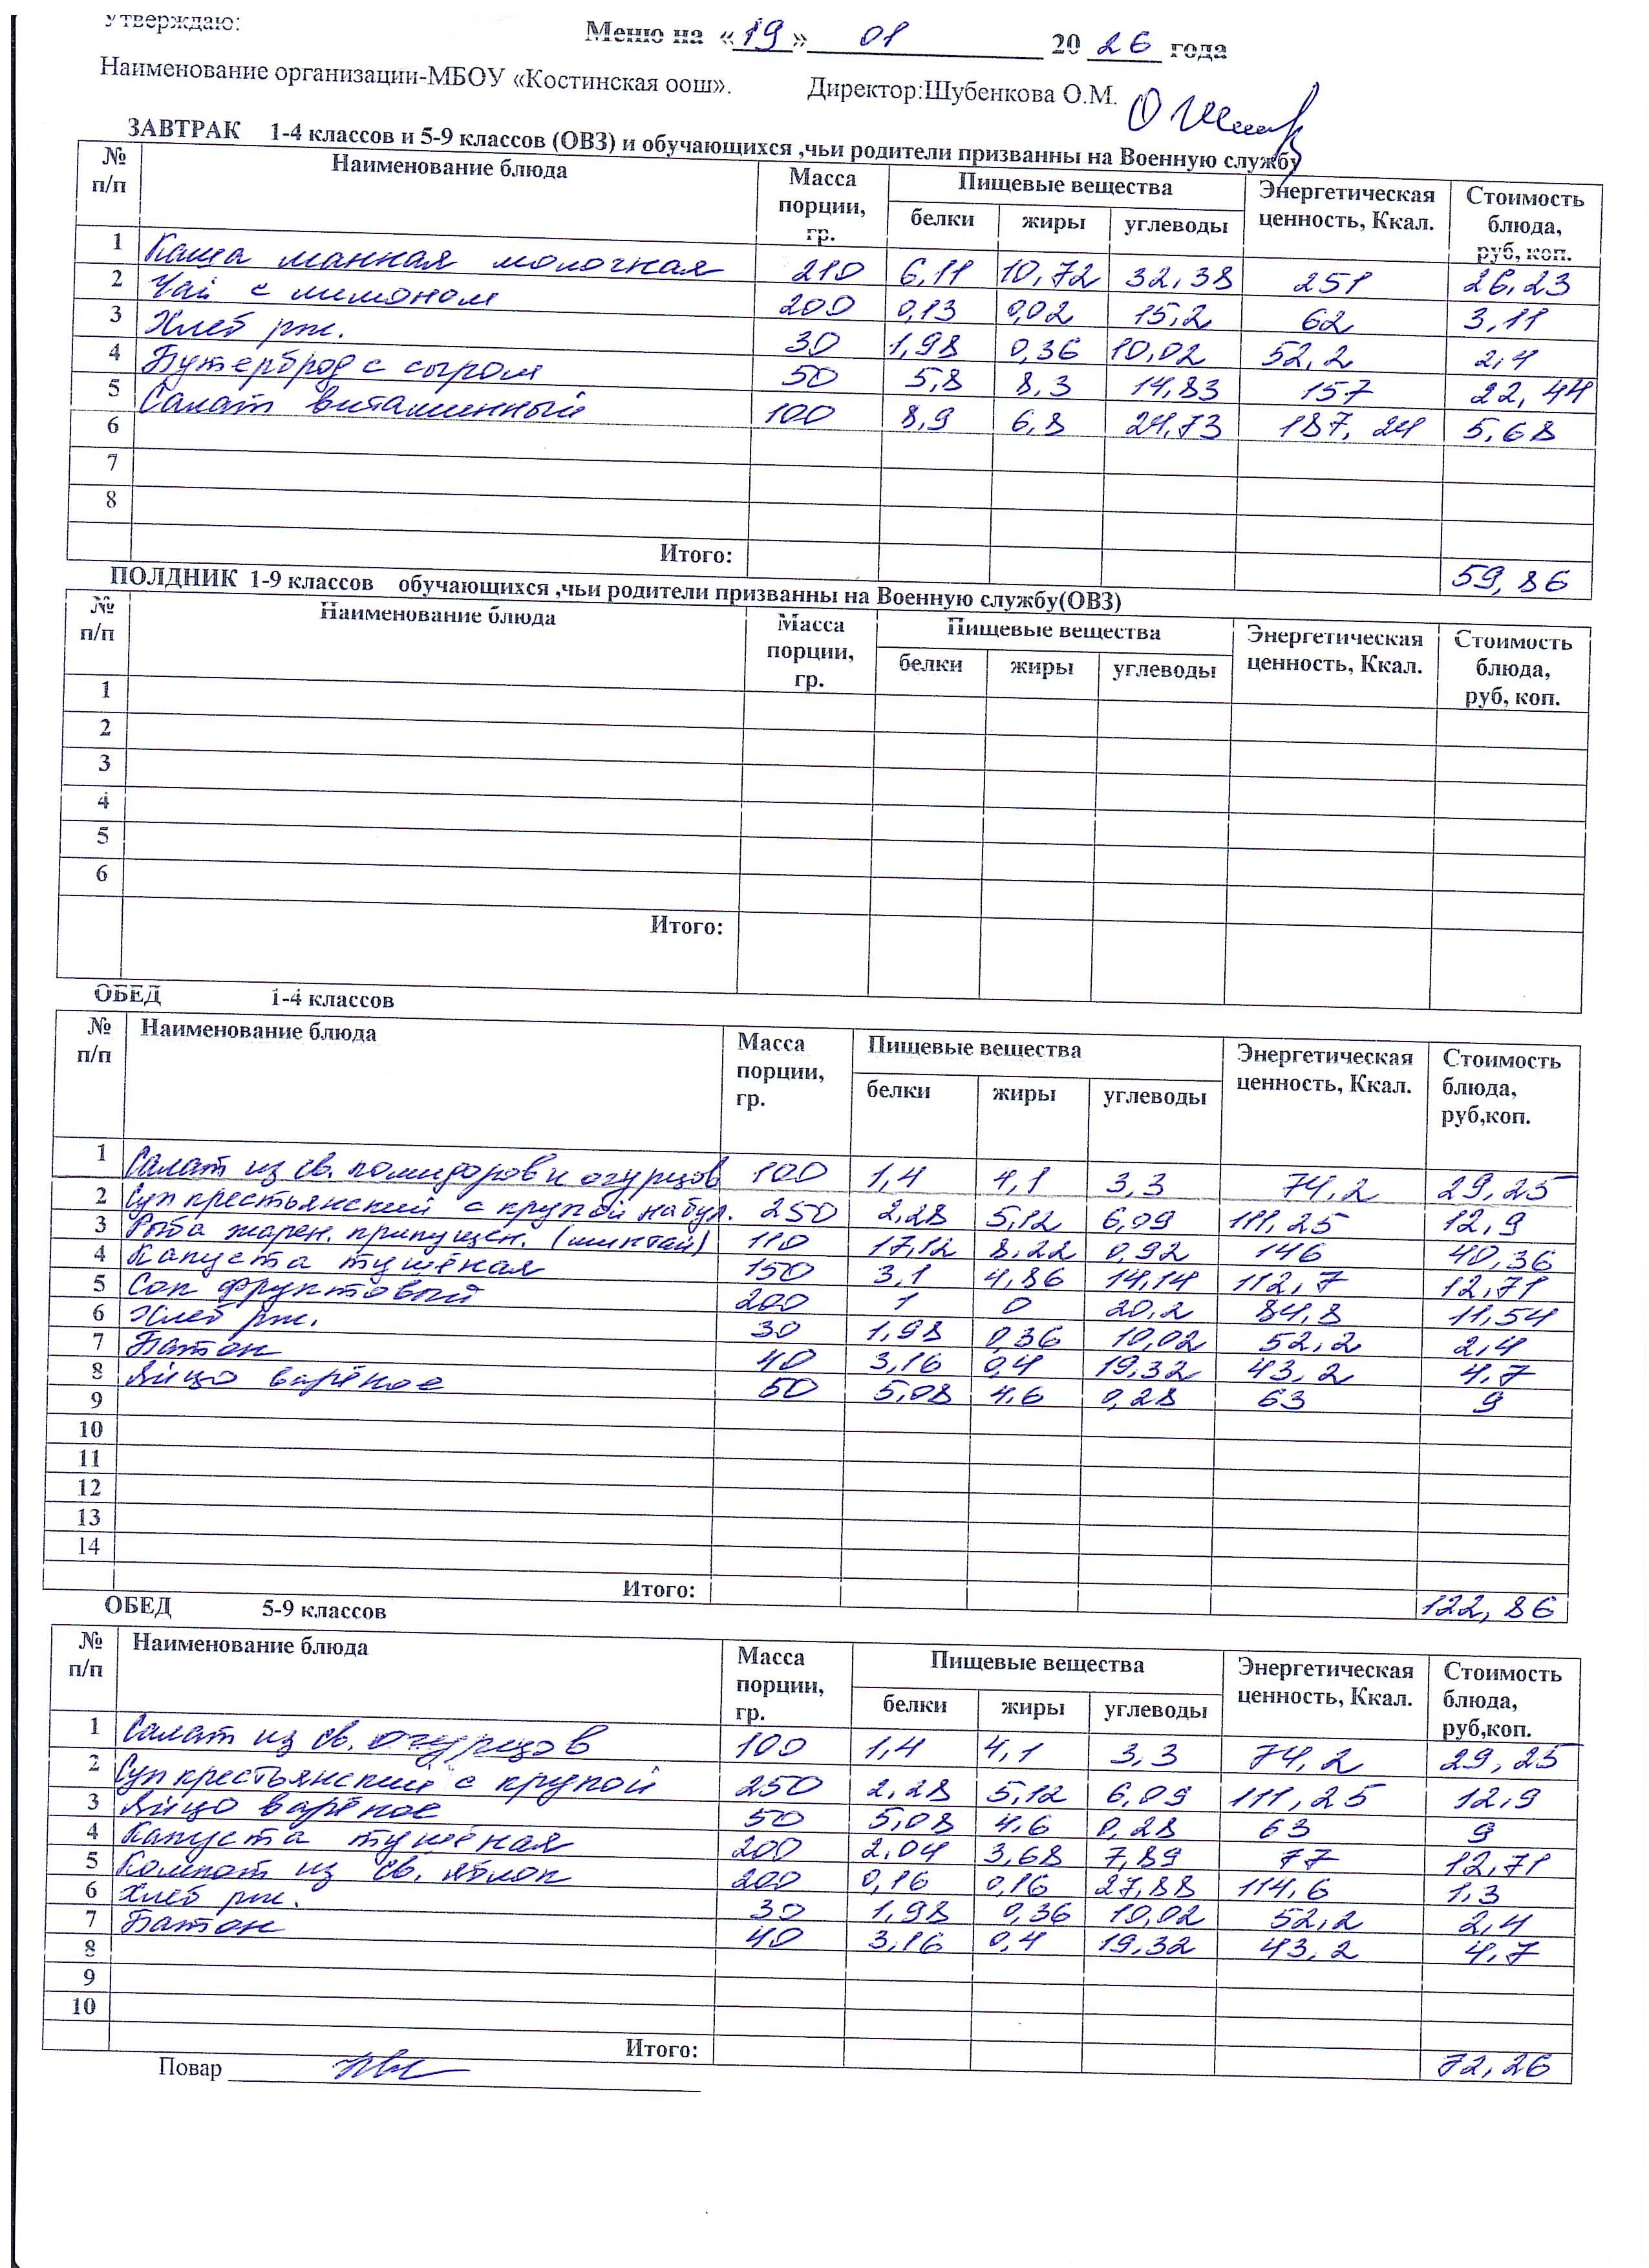 Утверждаю:
Меню на «19» 01 2026 года
Наименование организации-МБОУ «Костинская оош». Директор:Шубенкова О.М.
ЗАВТРАК 1-4 классов и 5-9 классов (ОВЗ) и обучающихся ,чьи родители призванны на Военную службу
№ п/п Наименование блюда Масса порции, гр. Пищевые вещества белки жиры углеводы Энергетическая ценность, Ккал. Стоимость блюда, руб, коп.
1 Каша манная молочная 210 6,11 10,72 32,38 251 26,23
2 Чай с лимоном 200 0,13 0,02 15,2 62 3,11
3 Хлеб рж. 30 1,98 0,36 10,02 52,2 2,4
4 Бутерброд с сыром 50 5,8 8,3 14,83 157 22,44
5 Салат витаминный 100 8,9 6,8 24,73 187,24 5,68
6
7
8
Итого: 59,86
ПОЛДНИК 1-9 классов обучающихся ,чьи родители призванны на Военную службу(ОВЗ)
№ п/п Наименование блюда Масса порции, гр. Пищевые вещества белки жиры углеводы Энергетическая ценность, Ккал. Стоимость блюда, руб, коп.
1
2
3
4
5
6
Итого:
ОБЕД 1-4 классов
№ п/п Наименование блюда Масса порции, гр. Пищевые вещества белки жиры углеводы Энергетическая ценность, Ккал. Стоимость блюда, руб,коп.
1 Салат из св. помидоров и огурцов 100 1,4 4,1 3,3 74,2 29,25
2 Суп крестьянский с крупой на бул. 250 2,28 5,12 6,09 111,25 12,9
3 Рыба жарен. припущен. (минтай) 110 17,12 8,22 0,92 146 40,36
4 Капуста тушёная 150 3,1 4,86 14,14 112,7 12,71
5 Сок фруктовый 200 1 0 20,2 84,8 11,54
6 Хлеб рж. 30 1,98 0,36 10,02 52,2 2,4
7 Батон 40 3,16 0,4 19,32 43,2 4,7
8 Яйцо варёное 50 5,08 4,6 0,28 63 9
9
10
11
12
13
14
Итого: 122,86
ОБЕД 5-9 классов
№ п/п Наименование блюда Масса порции, гр. Пищевые вещества белки жиры углеводы Энергетическая ценность, Ккал. Стоимость блюда, руб,коп.
1 Салат из св. огурцов 100 1,4 4,1 3,3 74,2 29,25
2 Суп крестьянский с крупой 250 2,28 5,12 6,09 111,25 12,9
3 Яйцо варёное 50 5,08 4,6 0,28 63 9
4 Капуста тушёная 200 2,04 3,68 7,89 77 12,71
5 Компот из св. яблок 200 0,16 0,16 27,88 114,6 1,3
6 Хлеб рж. 30 1,98 0,36 10,02 52,2 2,4
7 Батон 40 3,16 0,4 19,32 43,2 4,7
8
9
10
Итого: 72,26
Повар